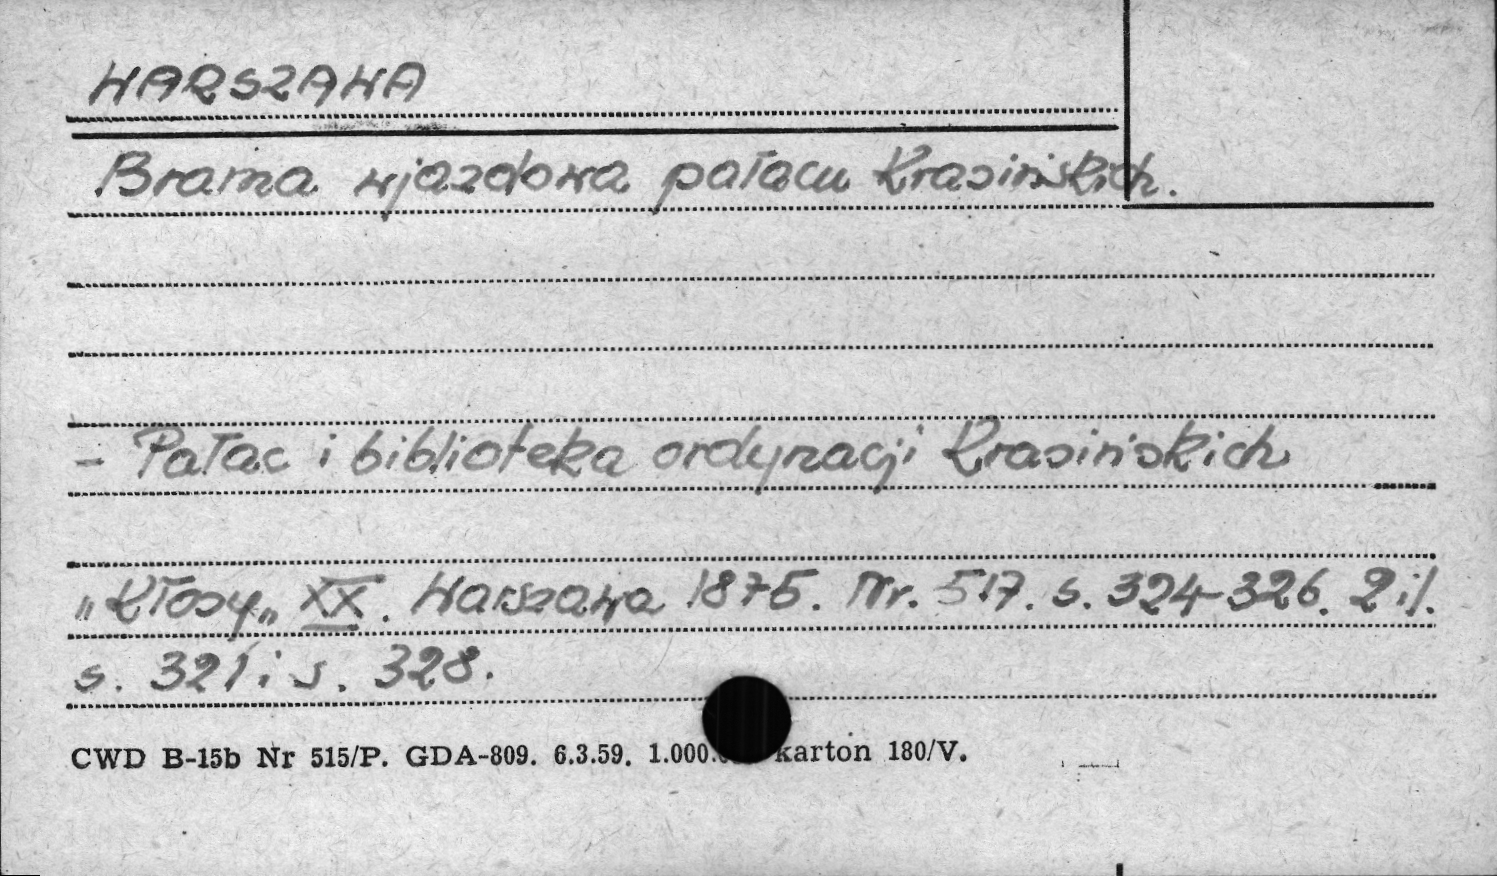 WARSZAWA
Brama wjazdowa pałacu Krasińskich.
- Pałac i biblioteka ordynacji Krasińskich
„Kłosy„ XX. Warszawa 1875. Nr. 517. s. 324-326. 2 il.
s. 321 i s. 328.
CWD B-15b Nr 515/P. GDA-809. 6.3.59. 1.000. karton 180/V.